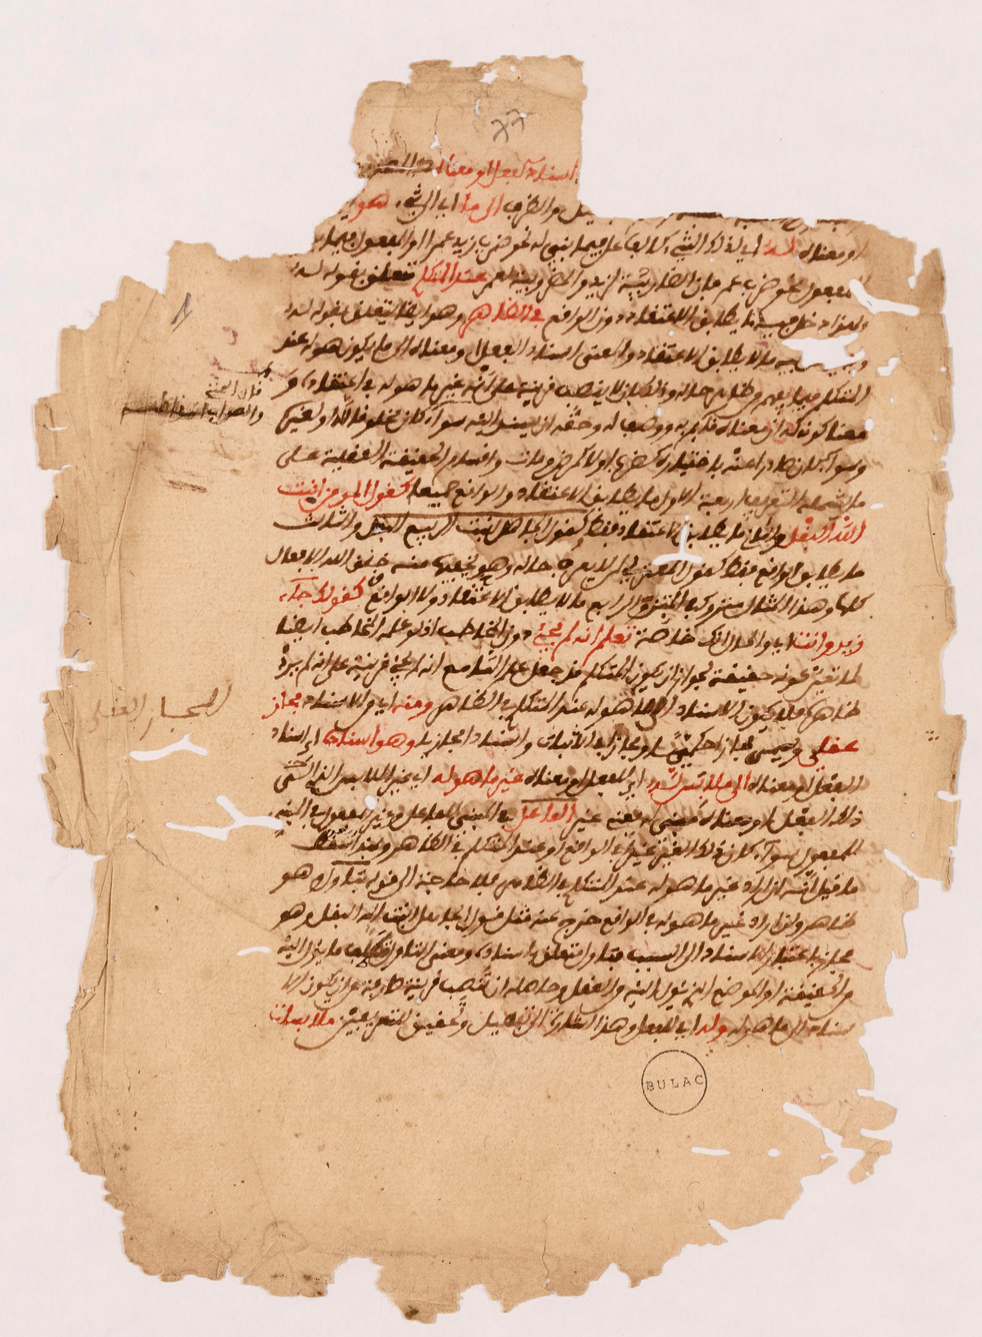 77
اسناد الفعل او معناه كالمصدر
والظرف الى ما اي الى شيء هو
او معناه له اي لذلك الشيء كالفاعل فيما بني له نحو ضرب زيد عمرا او المفعول فيما
المفعول نحو ضرب عمر فان الضاربية لزيد والمضروبية لعمر عند المتكلم متعلق بقوله له
وبهذا دخل فيه ما يطابق الاعتقاد دون الواقع في الظاهر وهو ايضا متعلق بقوله له
فيه ما لا يطابق الاعتقاد والمعنى اسناد الفعل او معناه الى ما يكون هو له عند
المتكلم فيما يفهم من ظاهر حاله وذلك بان لا ينصب قرينة على انه غير ما هو له في اعتقاده و
معنا كونه له ان معناه قائم به ووصف له وحقه ان يسند اليه سواء كان مخلوقا لله او لغيره
وسواء كان صادرا عنه باختياره كضرب او لا كمرض ومات واقسام الحقيقة العقلية على
ما يشمله التعريف اربعة الاول ما يطابق الاعتقاد والواقع جميعا كقول المومن انبت
الله البقل والثاني ما يطابق الاعتقاد فقط كقول الجاهل انبت الربيع البقل والثالث
ما يطابق الواقع فقط كقول المعتزلي لمن لا يعرف حاله وهو يخفيها منه خلق الله الافعال
كلها وهذا المثال متروك في المتن والرابع ما لا يطابق الاعتقاد ولا الواقع كقولك جاء
زيد وانت اي والحال انك خاصة تعلم انه لم يجئ دون المخاطب اذ لو علمه المخاطب ايضا
لما تعين كونه حقيقة لجواز ان يكون المتكلم قد جعل علم السامع انه لم يجئ قرينة على انه لم يرد
ظاهره فلا يكون الاسناد الى ما هو له عند المتكلم في الظاهر ومنه اي من الاسناد مجاز
عقلي ويسمى مجازا حكميا ومجازا في الاثبات واسنادا مجازيا وهو اسناده اي اسناد
الفعل او معناه الى ملابس له اي للفعل او معناه غير ما هو له اي غير الملابس الذي
ذلك الفعل او معناه مبني له يعني غير الفاعل في المبني للفاعل وغير المفعول في المبني
للمفعول سواء كان ذلك الغير غيرا في الواقع او عند المتكلم في الظاهر وبهذا سقط
ما قيل انه ان اراد غير ما هو له عند المتكلم في الظاهر فلا حاجة الى قوله بتاول وهو
ظاهر وان اراد غير ما هو له في الواقع خرج عنه مثل قول الجاهل انبت الله البقل وهو
مجاز باعتبار الاسناد الى السبب بتاول متعلق باسناده ومعنى التاول تطلب ما يئول اليه
من الحقيقة او الموضع الذي يئول اليه من العقل وحاصله ان تنصب قرينة صارفة عن ان يكون الا
سناد الى ما هو له وله اي للفعل وهذا اشارة الى تفصيل وتحقيق للتعريفين ملابسات
المجاز العقلي
BULAC